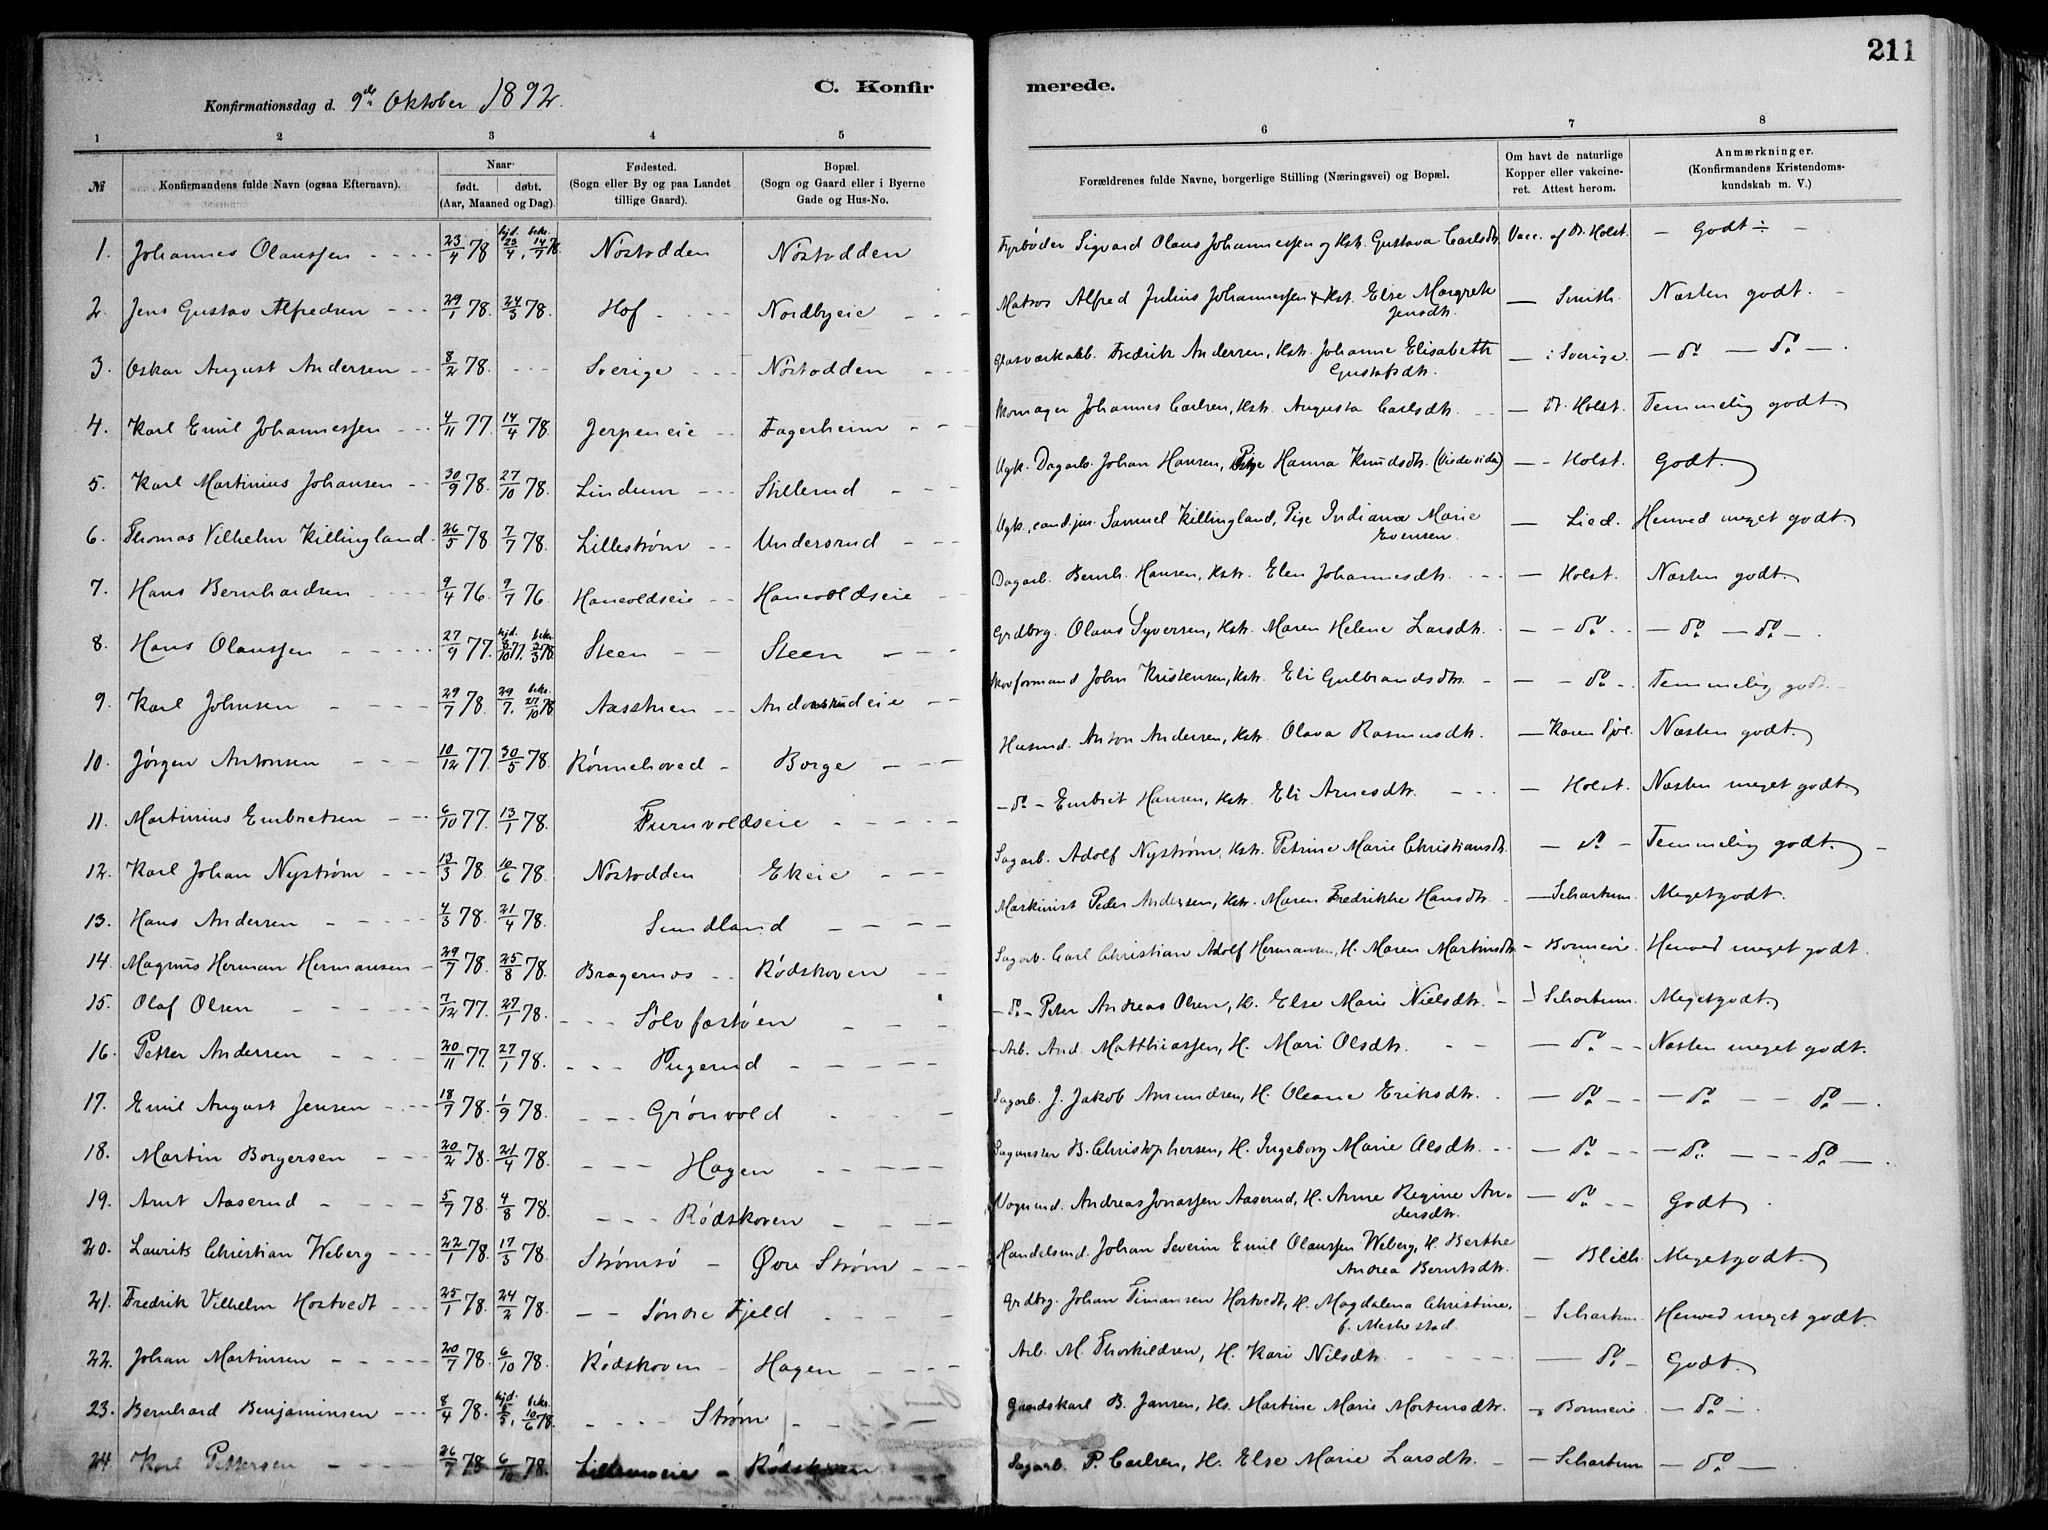 211
C. Konfirmerede.
Konfirmationsdag d. 9de Oktober 1892.
1 2 3 4 5 6 7 8
№
Konfirmandens fulde Navn (ogsaa Efternavn).
Naar
født. døbt.
(Aar, Maaned og Dag).
Fødested.
(Sogn eller By og paa Landet
tillige Gaard).
Bopæl.
(Sogn og Gaard eller i Byerne
Gade og Hus-No.
Forældrenes fulde Navne, borgerlige Stilling (Næringsvei) og Bopæl.
Om havt de naturlige
Kopper eller vakcine-
ret. Attest herom.
Anmærkninger.
(Konfirmandens Kristendoms-
kundskab m. V.)
1. Johannes Olaussen 23/4 78 hjd. 23/4, bekr. 14/7 78 Nøstodden Nøstodden Fyrbøder Sigvard Olaus Johannessen og Kst. Gustava Carlsdtr. Vacc. af Dr. Holst. – Godt ÷ –
2. Jens Gustav Alfredsen 29/1 78. 24/3 78. Hof Nordbyeie Matros Alfred Julius Johannessen & Kst. Else Margrete Jensdtr. — Smith. Næsten godt. –
3. Oskar August Andersen 8/2 78. Sverige Nøstodden Glasværksarb. Fredrik Andersen, Kstr. Johanne Elisabeth Gustafsdtr. — i Sverige. — do — do —.
4. Karl Emil Johannessen 4/11 77. 14/4 78. Jerpeneie Fagerheim Skomager Johannes Carlsen, Kstr. Augusta Carlsdtr. — Dr. Holst. Temmelig godt.
5. Karl Martinius Johansen 30/9 78. 27/10 78. Lindum Stillerud Ugk. Dagarb. Johan Hansen, Pige Hanna Knudsdtr. (viede sida) — Holst. Godt.
6. Thomas Vilhelm Killingland 26/5 78 7/7 78. Lillestrøm Undersrud Ugk. cand. jur. Samuel Killingland, Pige Indiana Marie Evensen. — Lied. Henved meget godt.
7. Hans Bernhardsen 9/4 76. 9/7 76 Hanevoldseie Hanevoldseie Dagarb. Bernh. Hansen, Kstr. Elen Johannesdtr. — Holst. Næsten godt.
8. Hans Olaussen 27/9 77. hjd. 8/10 77. bekr. 3/3 78. Steen Steen Grdbrg. Olaus Syversen, Kstr. Maren Helene Larsdtr. — do — do — do —
9. Karl Johnsen 29/7 78. 29/7. bekr. 27/10 78 Aasstuen Andorsrudeie Skovformand John Kristensen, Kstr. Eli Gulbrandsdtr. — do. Temmelig godt.
10. Jørgen Antonsen 10/12 77. 30/5 78. Rønnehoved Borge Husmd. Anton Andersen, Kstr. Olava Rasmusdtr. — Karen Sjøl. Næsten godt.
11. Martinius Embretsen 6/10 77. 13/1 78. Furuvoldseie — do — Embret Hansen, Kstr. Eli Arnesdtr. — Holst. Næsten meget godt.
12. Karl Johan Nystrøm 13/3 78. 10/6 78. Nøstodden Ekeie Sagarb. Adolf Nystrøm, Kstr. Petrine Marie Christiansdtr. — do — Temmelig godt. –
13. Hans Andersen 4/3 78. 21/4 78. Sundland Maskinist Peder Andersen, Kstr. Maren Fredrikke Hansdtr. — Schartum. Megetgodt.
14. Magnus Herman Hermansen 29/7 78. 25/8 78. Bragernæs Rødskoven Sagarb. Carl Christian Adolf Hermansen, H. Maren Martinsdtr. — Bonnevie. Henved meget godt.
15. Olaf Olsen 7/12 77. 27/1 78. Sølvfastøen — do — Peter Andreas Olsen, H. Else Marie Nielsdtr. — Schartum. Megetgodt.
16. Petter Andersen 20/11 77. 27/1 78. Pugerud Arb. And. Matthiassen, H. Mari Olsdtr. — do — Næsten meget godt.
17. Emil August Jensen 18/7 78. 1/9 78. Grønvold Sagarb. J. Jakob Amundsen, H. Oleane Eriksdtr. — do — do — do —.
18. Martin Borgersen 20/2 78. 21/4 78. Hagen Sagmester B. Christophersen, H. Ingeborg Marie Olsdtr. — do — do — do —.
19. Arnt Aaserud 5/7 78. 4/8 78. Rødskoven Vognmd. Andreas Jonassen Aaserud, H. Anne Regine Andersdtr. — do — Godt.
20. Laurits Christian Weberg 22/1 78. 17/3 78. Strømsø Øvre Strøm Handelsmd. Johan Severin Emil Olaussen Weberg, H. Berthe Andrea Berntsdtr. — Blich. Megetgodt.
21. Fredrik Vilhelm Hostvedt 25/1 78. 24/2 78. Søndre Fjeld Grdbrg. Johan Simansen Hostvedt, H. Magdalena Christine, f. Meshestad. — Schartum. Henved meget godt.
22. Johan Martinsen 20/7 78. 6/10 78. Rødskoven Hagen Arb. M. Thorkildsen, H. Kari Nilsdtr. — do — Godt.
23. Bernhard Benjaminsen 8/4 78. hjd. 5/5, bekr. 10/6 78. Strøm Gaardskarl B. Jansen, H. Martine Marie Mortensdtr. — Bonnevie. — do —.
24. Karl Pettersen 26/7 78. 6/10 78. Rødskoven Sagarb. P. Carlsen, H. Else Marie Larsdtr. — Schartum — do —.